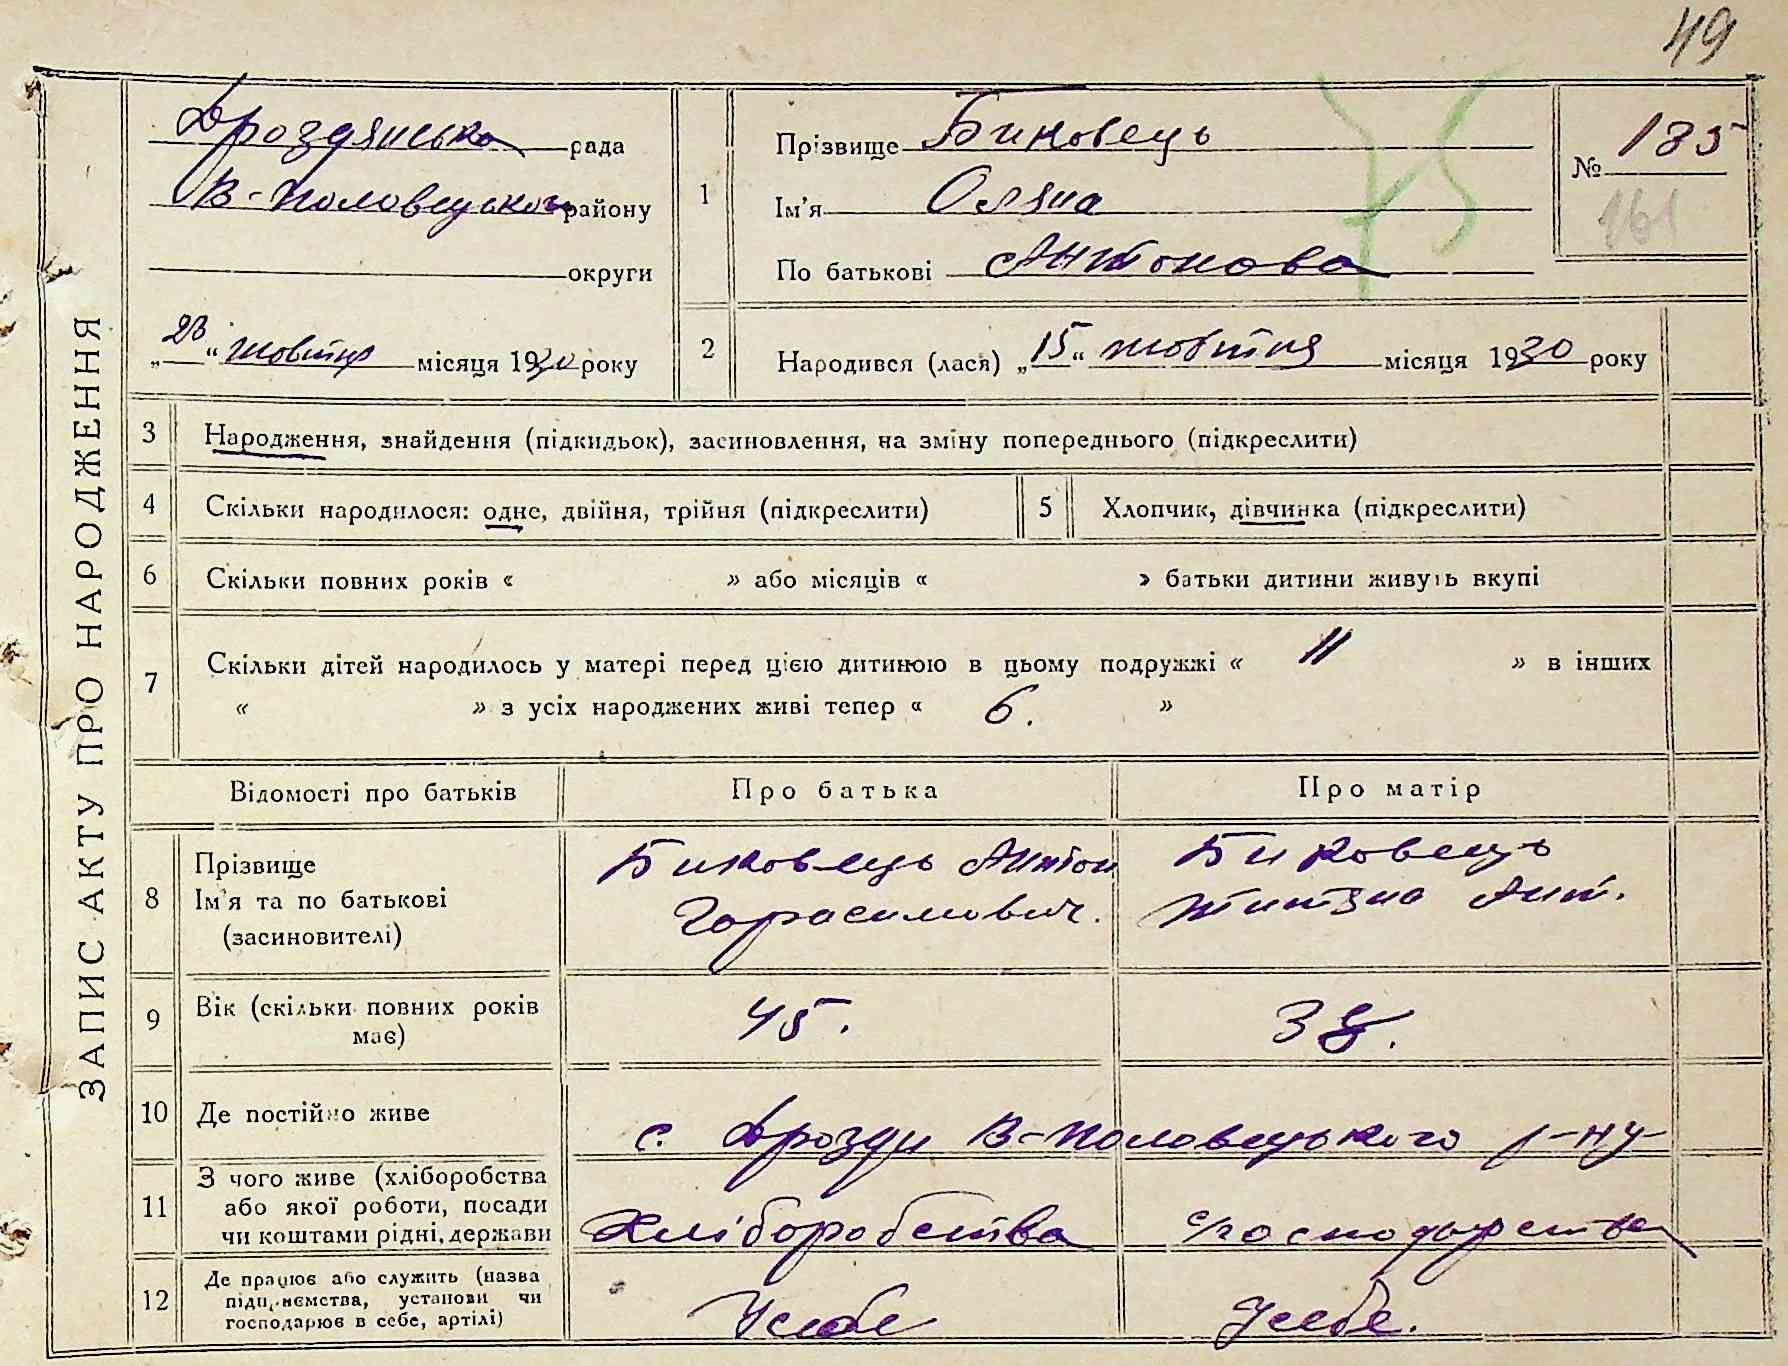 49
ЗАПИС АКТУ ПРО НАРОДЖЕННЯ
Дроздянська рада
В-Половецького району
округи
„23“ жовтня місяця 1930 року
1
Прізвище Биковець
Ім'я Оляна
По батькові Антонова
№ 185
161
75
2
Народився (лася) „15“ жовтня місяця 1930 року
3
Народження, знайдення (підкидьок), засиновлення, на зміну попереднього (підкреслити)
4
Скільки народилося: одне, двійня, трійня (підкреслити)
5
Хлопчик, дівчинка (підкреслити)
6
Скільки повних років « » або місяців « » батьки дитини живуть вкупі
7
Скільки дітей народилось у матері перед цією дитиною в цьому подружжі « 11 » в інших
« » з усіх народжених живі тепер « 6. »
Відомості про батьків
Про батька
Про матір
8
Прізвище
Ім'я та по батькові
(засиновителі)
Биковець Антон
Гарасимович.
Биковець
Ант.
9
Вік (скільки повних років
має)
45.
38.
10
Де постійно живе
с. Дрозди В-Половецького р-ну
11
З чого живе (хліборобства
або якої роботи, посади
чи коштами рідні, держави
Хліборобства
Господарства
12
Де працює або служить (назва
підприємства, установи чи
господарює в себе, артілі)
Усебе
Усебе.